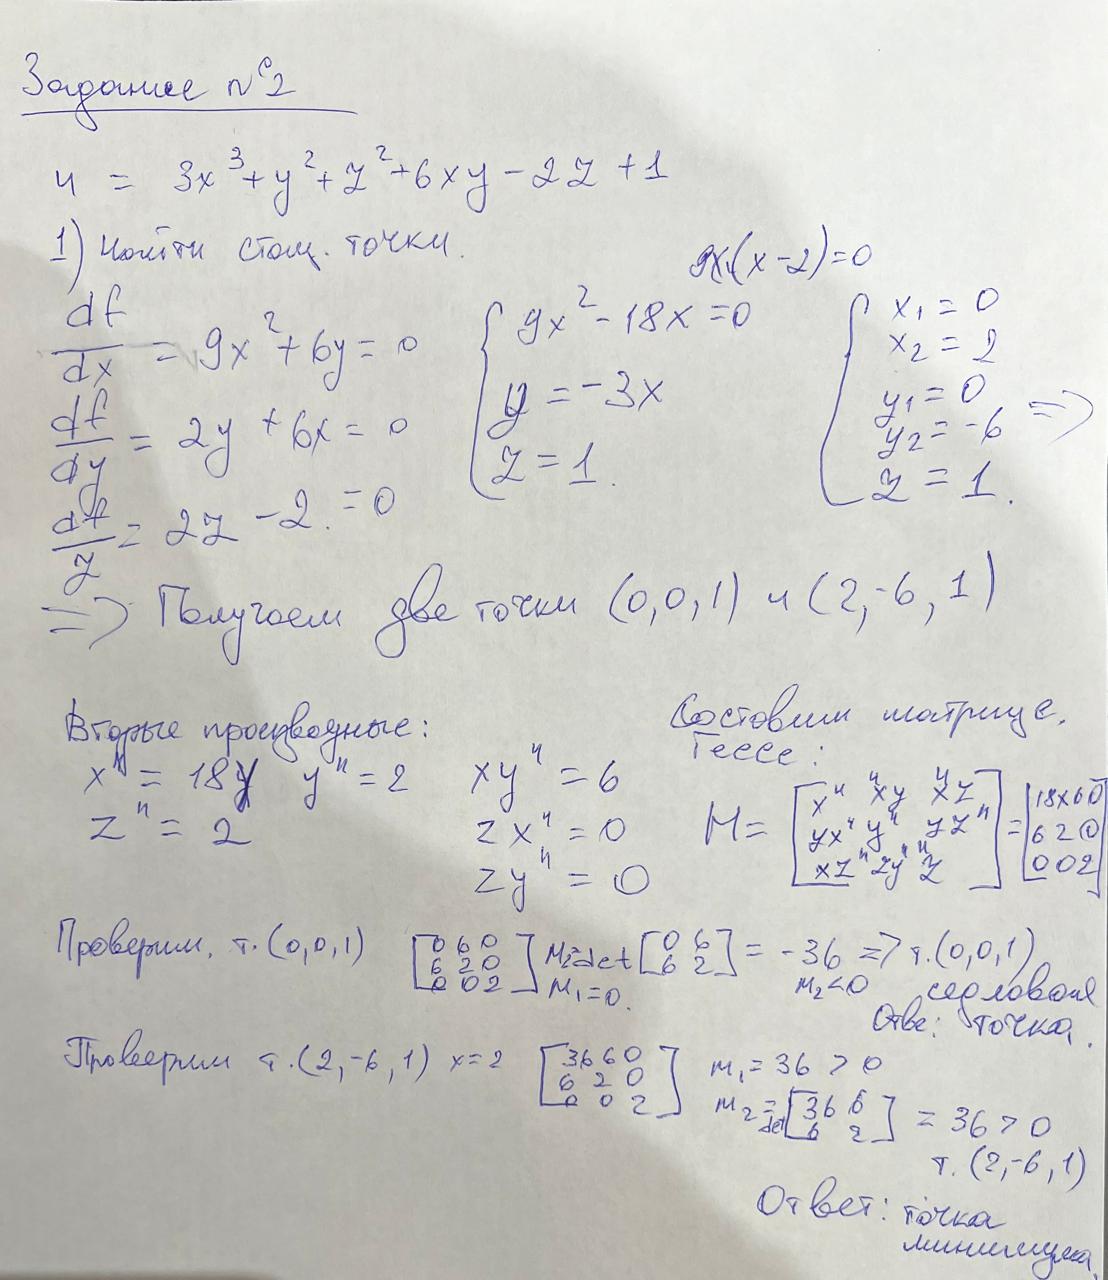 Задание №2
u = 3x³ + y² + z² + 6xy - 2z + 1
1) Найти стац. точки.
9x(x-2)=0
df/dx = 9x² + 6y = 0
df/dy = 2y + 6x = 0
df/z = 2z - 2 = 0
{ 9x² - 18x = 0
y = -3x
z = 1.
{ x₁ = 0
x₂ = 2
y₁ = 0
y₂ = -6 =>
z = 1.
=> Получаем две точки (0,0,1) и (2,-6,1)
Вторые производные:
x" = 18x y" = 2 xy" = 6
z" = 2 zx" = 0
zy" = 0
Составим матрицу.
Гессе:
H = [x" xy" xz"
yx" y" yz"
xz" zy" z"] = [18x 6 0
6 2 0
0 0 2]
Проверим. т.(0,0,1) [0 6 0
6 2 0
0 0 2] M₁=0. M₂=det [0 6
6 2] = -36 => т.(0,0,1)
M₂<0 седловая
Отве: точка.
Проверим т.(2,-6,1) x=2 [36 6 0
6 2 0
0 0 2] M₁ = 36 > 0
M₂ = det [36 6
6 2] = 36 > 0
т.(2,-6,1)
Ответ: точка
минимума.